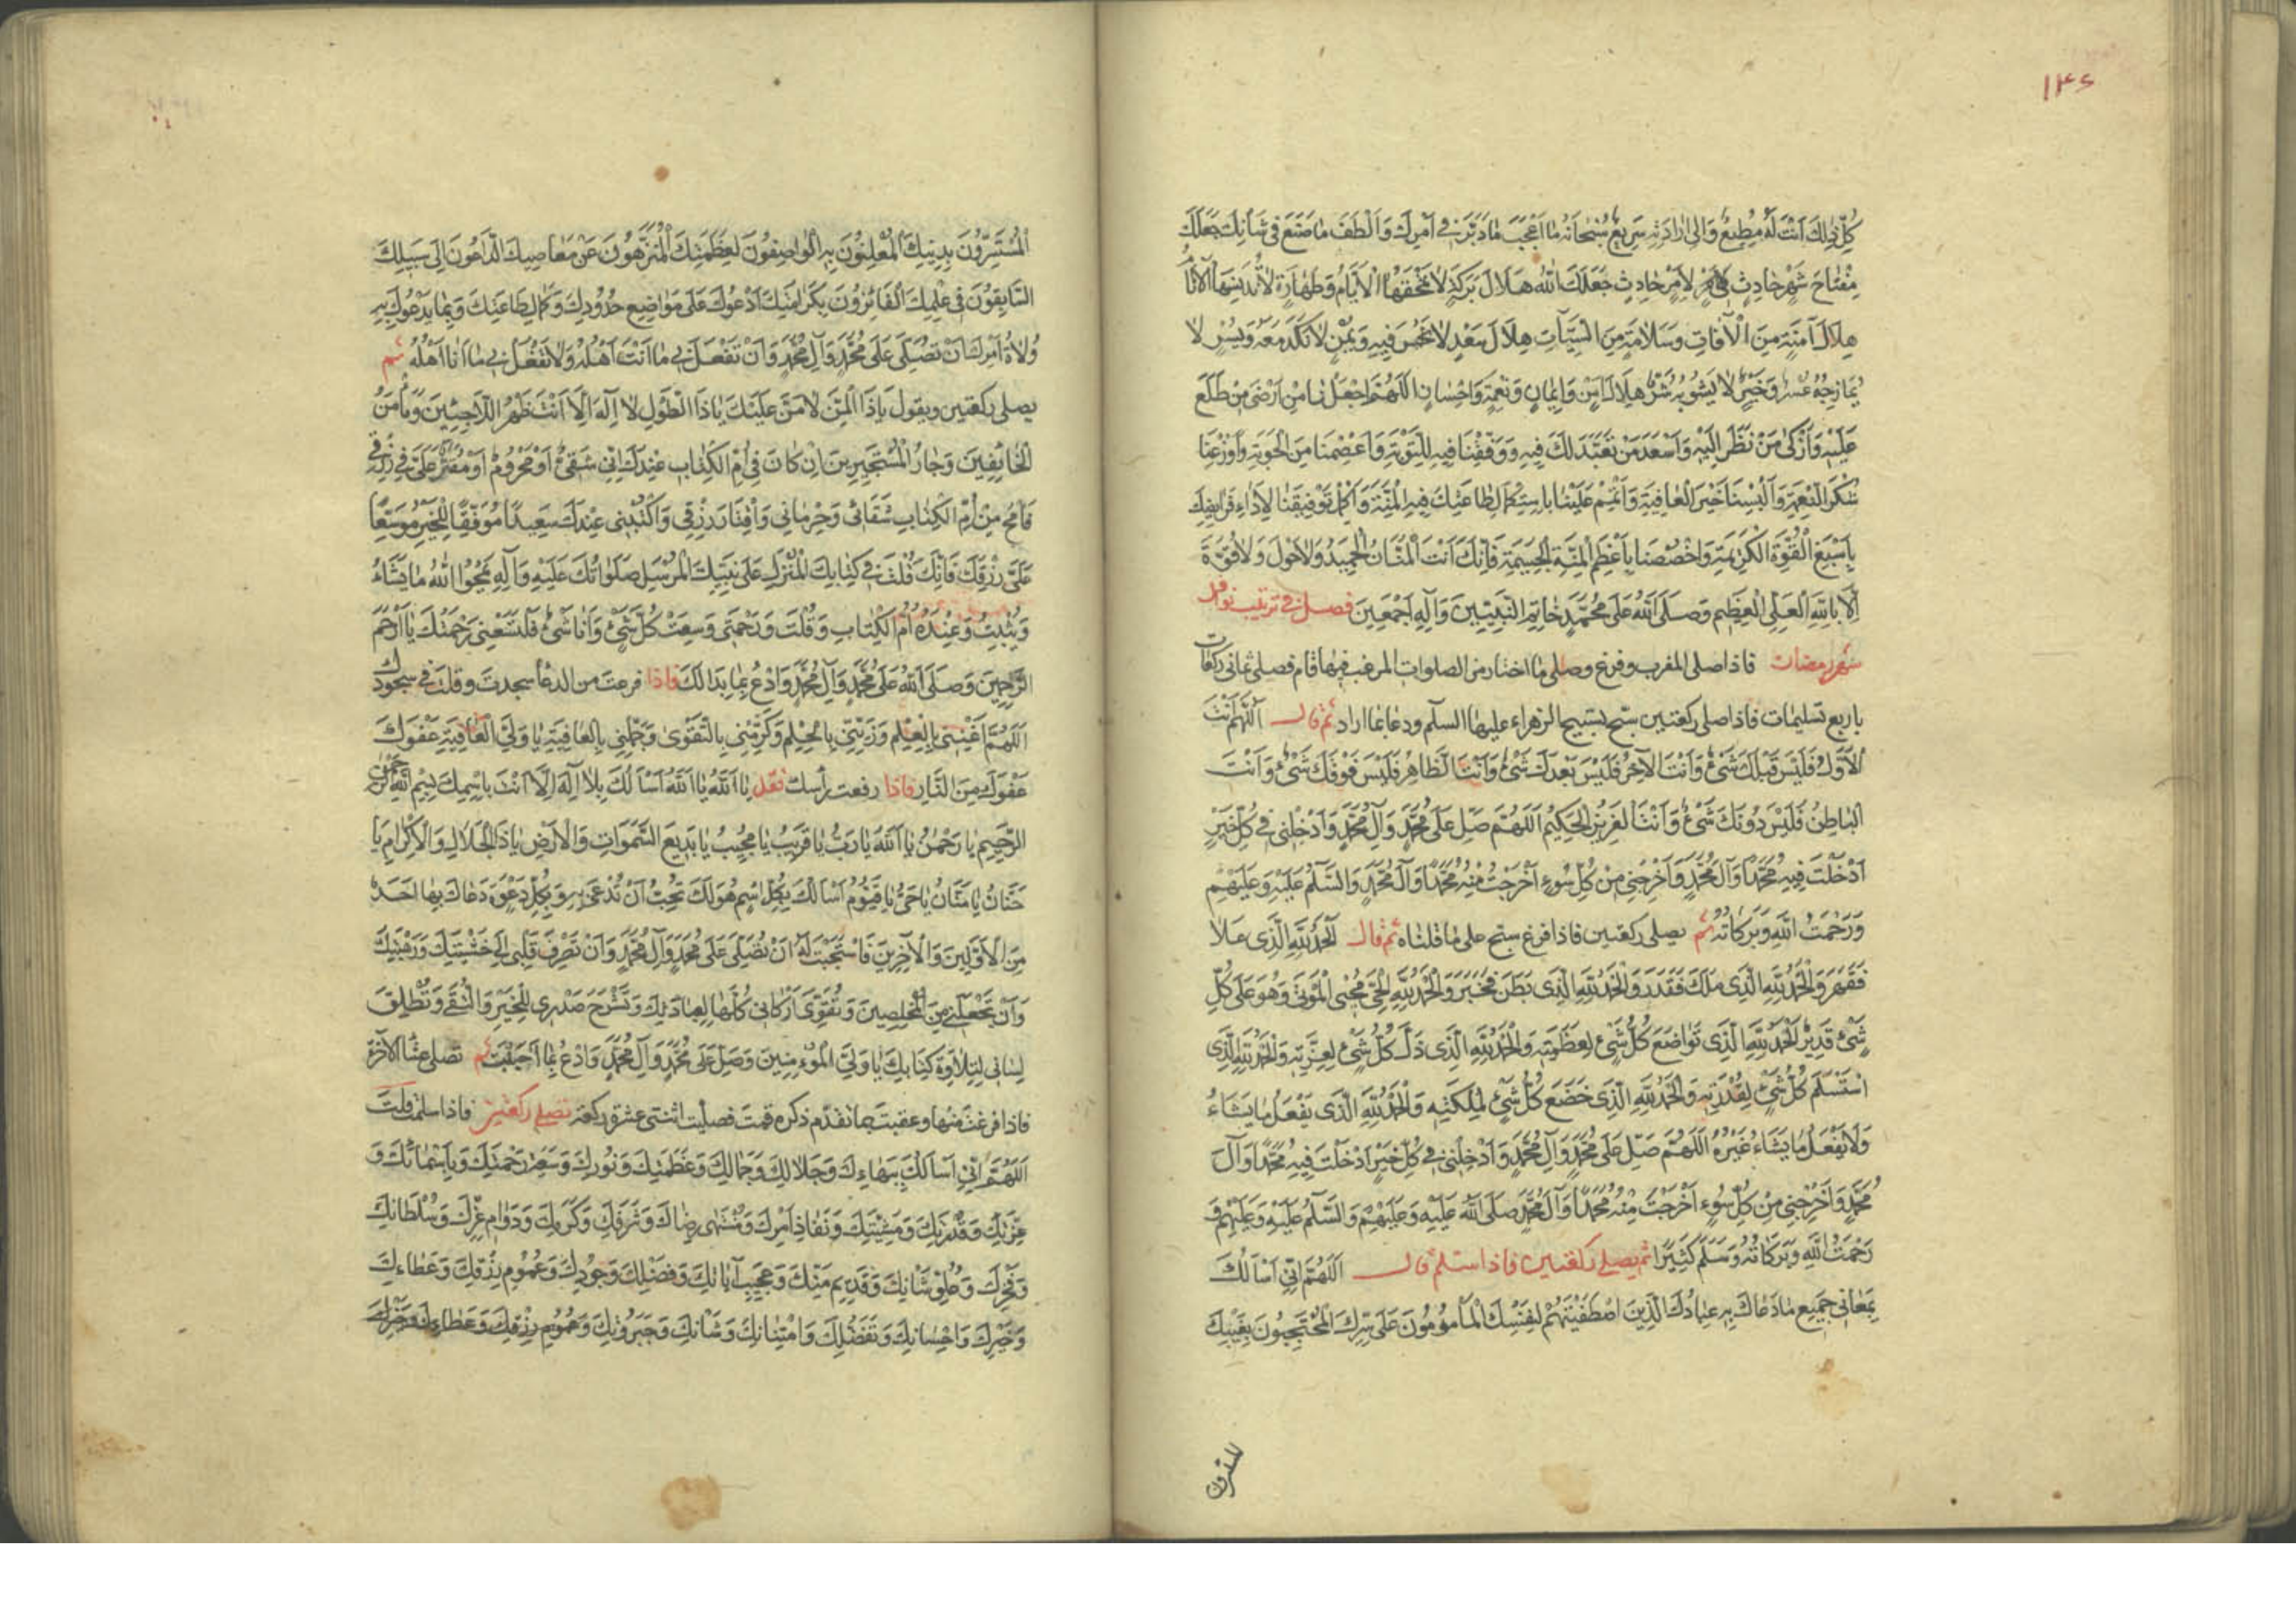 ۱۴۶
كُلِّ ذٰلِكَ اَنْتَ لَهُ مُطِيعٌ وَاِلىٰ اِرادَتِهِ سَرِيعٌ سُبْحانَهُ ما اَعْجَبَ ما دَبَّرَ في اَمْرِكَ وَاَلْطَفَ ما صَنَعَ فى شَأنِكَ جَعَلَكَ
مِفْتاحَ شَهْرٍ حادِثٍ لِاَمْرٍ حادِثٍ جَعَلَكَ اللهُ هِلالَ بَرَكَةٍ لا تَمْحَقُهَا الْاَيّامُ وَطَهارَةٍ لا تُدَنِّسُهَا الْآثامُ
هِلالَ اَمَنَةٍ مِنَ الْآفاتِ وَسَلامَةٍ مِنَ السَّيِّآتِ هِلالَ سَعْدٍ لا نَحْسَ فِيهِ وَيُمْنٍ لا نَكَدَ مَعَهُ وَيُسْرٍ لا
يُمازِجُهُ عُسْرٌ وَخَيْرٍ لا يَشُوبُهُ شَرٌّ هِلالَ اَمْنٍ وَاِيمانٍ وَنِعْمَةٍ وَاِحْسانٍ اَللّهُمَّ اجْعَلْنا مِنْ اَرْضىٰ مَنْ طَلَعَ
عَلَيْهِ وَاَزْكىٰ مَنْ نَظَرَ اِلَيْهِ وَاَسْعَدَ مَنْ تَعَبَّدَ لَكَ فِيهِ وَوَفِّقْنا فِيهِ لِلتَّوْبَةِ وَاعْصِمْنا مِنَ الْحَوْبَةِ وَاَوْزِعْنا
شُكْرَ النِّعْمَةِ وَاَلْبِسْنا خَيْرَ الْعافِيَةِ وَاَتْمِمْ عَلَيْنا بِاسْتِكْمالِ طاعَتِكَ فِيهِ الْمِنَّةَ وَاَكْمِلْ تَوْفِيقَنا لِاَداءِ فَرائِضِكَ
بِاَسْبَغِ الْقُوَّةِ الْكَرِيمَةِ وَاخْصُصْنا بِاَعْظَمِ الْمِنَّةِ الْجَسِيمَةِ فَاِنَّكَ اَنْتَ الْمَنّانُ الْحَمِيدُ وَلا حَوْلَ وَلا قُوَّةَ
اِلّا بِاللهِ الْعَلِيِّ الْعَظِيمِ وَصَلَّى اللهُ عَلىٰ مُحَمَّدٍ خاتِمِ النَّبِيِّينَ وَآلِهِ اَجْمَعِينَ فصل في ترتيب نوافل
شهر رمضان فاذا صلى المغرب وفرغ وصلى ما اختار من الصلوات المرغب فيها قام فصلى ثمانى ركعات
باربع تسليمات فاذا صلى ركعتين سبّح تسبيح الزهراء عليها السلم ودعا بما اراد ثم قال اَللّهُمَّ اَنْتَ
الْاَوَّلُ فَلَيْسَ قَبْلَكَ شَىْءٌ وَاَنْتَ الْآخِرُ فَلَيْسَ بَعْدَكَ شَىْءٌ وَاَنْتَ الظّاهِرُ فَلَيْسَ فَوْقَكَ شَىْءٌ وَاَنْتَ
الْباطِنُ فَلَيْسَ دُونَكَ شَىْءٌ وَاَنْتَ الْعَزِيزُ الْحَكِيمُ اَللّهُمَّ صَلِّ عَلىٰ مُحَمَّدٍ وَآلِ مُحَمَّدٍ وَاَدْخِلْنى فى كُلِّ خَيْرٍ
اَدْخَلْتَ فِيهِ مُحَمَّدًا وَآلَ مُحَمَّدٍ وَاَخْرِجْنى مِنْ كُلِّ سُوءٍ اَخْرَجْتَ مِنْهُ مُحَمَّدًا وَآلَ مُحَمَّدٍ وَالسَّلَمُ عَلَيْهِ وَعَلَيْهِمْ
وَرَحْمَتُ اللهِ وَبَرَكاتُهُ ثم يصلى ركعتين فاذا فرغ سبح على ما قلناه ثم قال اَلْحَمْدُ لِلّهِ الَّذِى عَلا
فَقَهَرَ وَالْحَمْدُ لِلّهِ الَّذِى مَلَكَ فَقَدَرَ وَالْحَمْدُ لِلّهِ الَّذِى بَطَنَ فَخَبَرَ وَالْحَمْدُ لِلّهِ الَّذى يُحْيِى الْمَوْتىٰ وَهُوَ عَلىٰ كُلِّ
شَىْءٍ قَدِيرٌ اَلْحَمْدُ لِلّهِ الَّذِى تَواضَعَ كُلُّ شَىْءٍ لِعَظَمَتِهِ وَالْحَمْدُ لِلّهِ الَّذِى ذَلَّ كُلُّ شَىْءٍ لِعِزَّتِهِ وَالْحَمْدُ لِلّهِ الَّذِى
اسْتَسْلَمَ كُلُّ شَىْءٍ لِقُدْرَتِهِ وَالْحَمْدُ لِلّهِ الَّذِى خَضَعَ كُلُّ شَىْءٍ لِمَلَكَتِهِ وَالْحَمْدُ لِلّهِ الَّذى يَفْعَلُ ما يَشاءُ
وَلا يَفْعَلُ ما يَشاءُ غَيْرُهُ اَللّهُمَّ صَلِّ عَلىٰ مُحَمَّدٍ وَآلِ مُحَمَّدٍ وَاَدْخِلْنى فى كُلِّ خَيْرٍ اَدْخَلْتَ فِيهِ مُحَمَّدًا وَآلَ
مُحَمَّدٍ وَاَخْرِجْنى مِنْ كُلِّ سُوءٍ اَخْرَجْتَ مِنْهُ مُحَمَّدًا وَآلَ مُحَمَّدٍ صَلَّى اللهُ عَلَيْهِ وَعَلَيْهِمْ وَالسَّلَمُ عَلَيْهِ وَعَلَيْهِمْ وَ
رَحْمَتُ اللهِ وَبَرَكاتُهُ وَسَلَّمَ كَثِيرًا ثم يصلى ركعتين فاذا سلم قال اَللّهُمَّ اِنِّى اَسْأَلُكَ
بِمَعانى جَمِيعِ ما دَعاكَ بِهِ عِبادُكَ الَّذِينَ اصْطَفَيْتَهُمْ لِنَفْسِكَ الْمَأمُونُونَ عَلىٰ سِرِّكَ الْمُحْتَجِبُونَ بِغَيْبِكَ
المستسرون
اَلْمُسْتَسِرُّونَ بِدِينِكَ الْمُعْلِنُونَ بِهِ الْواصِفُونَ لِعَظَمَتِكَ الْمُتَنَزِّهُونَ عَنْ مَعاصِيكَ الدّاعُونَ اِلىٰ سَبِيلِكَ
السّابِقُونَ فى عِلْمِكَ الْفائِزُونَ بِكَرامَتِكَ اَدْعُوكَ عَلىٰ مَواضِعِ حُدُودِكَ وَكَمالِ طاعَتِكَ وَبِما يَدْعُوكَ بِهِ
وُلاةُ اَمْرِكَ اَنْ تُصَلِّىَ عَلىٰ مُحَمَّدٍ وَآلِ مُحَمَّدٍ وَاَنْ تَفْعَلَ بى ما اَنْتَ اَهْلُهُ وَلا تَفْعَلْ بى ما اَنَا اَهْلُهُ ثم
يصلى ركعتين ويقول يا ذَا الْمَنِّ لا مَنَّ عَلَيْكَ يا ذَا الطَّوْلِ لا اِلهَ اِلّا اَنْتَ ظَهْرُ اللّاجِئِينَ وَمَأْمَنُ
الْخائِفِينَ وَجارُ الْمُسْتَجِيرِينَ اِنْ كانَ فى اُمِّ الْكِتابِ عِنْدَكَ اَنِّى شَقِىٌّ اَوْ مَحْرُومٌ اَوْ مُقَتَّرٌ عَلَىَّ فى رِزْقى
فَامْحُ مِنْ اُمِّ الْكِتابِ شَقائى وَحِرْمانى وَاِقْتارَ رِزْقى وَاكْتُبْنى عِنْدَكَ سَعِيدًا مُوَفَّقًا لِلْخَيْرِ مُوَسَّعًا
عَلَىَّ رِزْقُكَ فَاِنَّكَ قُلْتَ فى كِتابِكَ الْمُنْزَلِ عَلىٰ نَبِيِّكَ الْمُرْسَلِ صَلَواتُكَ عَلَيْهِ وَآلِهِ يَمْحُوا اللهُ ما يَشاءُ
وَيُثْبِتُ وَعِنْدَهُ اُمُّ الْكِتابِ وَقُلْتَ وَرَحْمَتى وَسِعَتْ كُلَّ شَىْءٍ وَاَنَا شَىْءٌ فَلْتَسَعْنى رَحْمَتُكَ يا اَرْحَمَ
الرّاحِمِينَ وَصَلَّى اللهُ عَلىٰ مُحَمَّدٍ وَآلِ مُحَمَّدٍ وَادْعُ بِما بَدا لَكَ فاذا فرغت من الدعاء سجدت وقلت فى سجودك
اَللّهُمَّ اَغْنِنى بِالْعِلْمِ وَزَيِّنِّى بِالْحِلْمِ وَكَرِّمْنى بِالتَّقْوىٰ وَجَمِّلْنى بِالْعافِيَةِ يا وَلِىَّ الْعافِيَةِ عَفْوَكَ
عَفْوَكَ مِنَ النّارِ فاذا رفعت رأسك فقل يا اَللهُ يا اَللهُ اَسْأَلُكَ بِلا اِلهَ اِلّا اَنْتَ بِاسْمِكَ بِسْمِ اللهِ الرَّحْمٰنِ
الرَّحِيمِ يا رَحْمٰنُ يا اَللهُ يا رَبُّ يا قَرِيبُ يا مُجِيبُ يا بَدِيعَ السَّمَواتِ وَالْاَرْضِ يا ذَا الْجَلالِ وَالْاِكْرامِ يا
حَنّانُ يا مَنّانُ يا حَىُّ يا قَيُّومُ اَسْأَلُكَ بِكُلِّ اسْمٍ هُوَ لَكَ تُحِبُّ اَنْ تُدْعىٰ بِهِ وَبِكُلِّ دَعْوَةٍ دَعاكَ بِها اَحَدٌ
مِنَ الْاَوَّلِينَ وَالْآخِرِينَ فَاسْتَجَبْتَ لَهُ اَنْ تُصَلِّىَ عَلىٰ مُحَمَّدٍ وَآلِ مُحَمَّدٍ وَاَنْ تَصْرِفَ قَلْبى اِلىٰ خَشْيَتِكَ وَرَهْبَتِكَ
وَاَنْ تَجْعَلَنى مِنَ الْمُخْلِصِينَ وَتُقَوِّىَ اَرْكانى كُلَّها لِعِبادَتِكَ وَتَشْرَحَ صَدْرِى لِلْخَيْرِ وَالتُّقىٰ وَتُطْلِقَ
لِسانى لِتِلاوَةِ كِتابِكَ يا وَلِىَّ الْمُؤْمِنِينَ وَصَلِّ عَلىٰ مُحَمَّدٍ وَآلِ مُحَمَّدٍ وَادْعُ بِما اَحْبَبْتَ ثم تصلى عشاء الآخرة
فاذا فرغت منها وعقبت بما تقدّم ذكره قمت فصليت اثنتى عشرة ركعة تصلى ركعتين فاذا سلمت قلت
اَللّهُمَّ اِنِّى اَسْأَلُكَ بِبَهائِكَ وَجَلالِكَ وَجَمالِكَ وَعَظَمَتِكَ وَنُورِكَ وَسَعَةِ رَحْمَتِكَ وَبِاَسْمائِكَ وَ
عِزَّتِكَ وَقُدْرَتِكَ وَمَشِيَّتِكَ وَنَفاذِ اَمْرِكَ وَمُنْتَهىٰ رِضاكَ وَشَرَفِكَ وَكَرَمِكَ وَدَوامِ عِزِّكَ وَسُلْطانِكَ
وَفَخْرِكَ وَعُلُوِّ شَأنِكَ وَقَدِيمِ مَنِّكَ وَعَجِيبِ آياتِكَ وَفَضْلِكَ وَجُودِكَ وَعُمُومِ رِزْقِكَ وَعَطائِكَ
وَخَيْرِكَ وَاِحْسانِكَ وَتَفَضُّلِكَ وَامْتِنانِكَ وَشَأنِكَ وَجَبَرُوتِكَ وَعُمُومِ رِزْقِكَ وَعَطائِكَ وَخَيْرِكَ